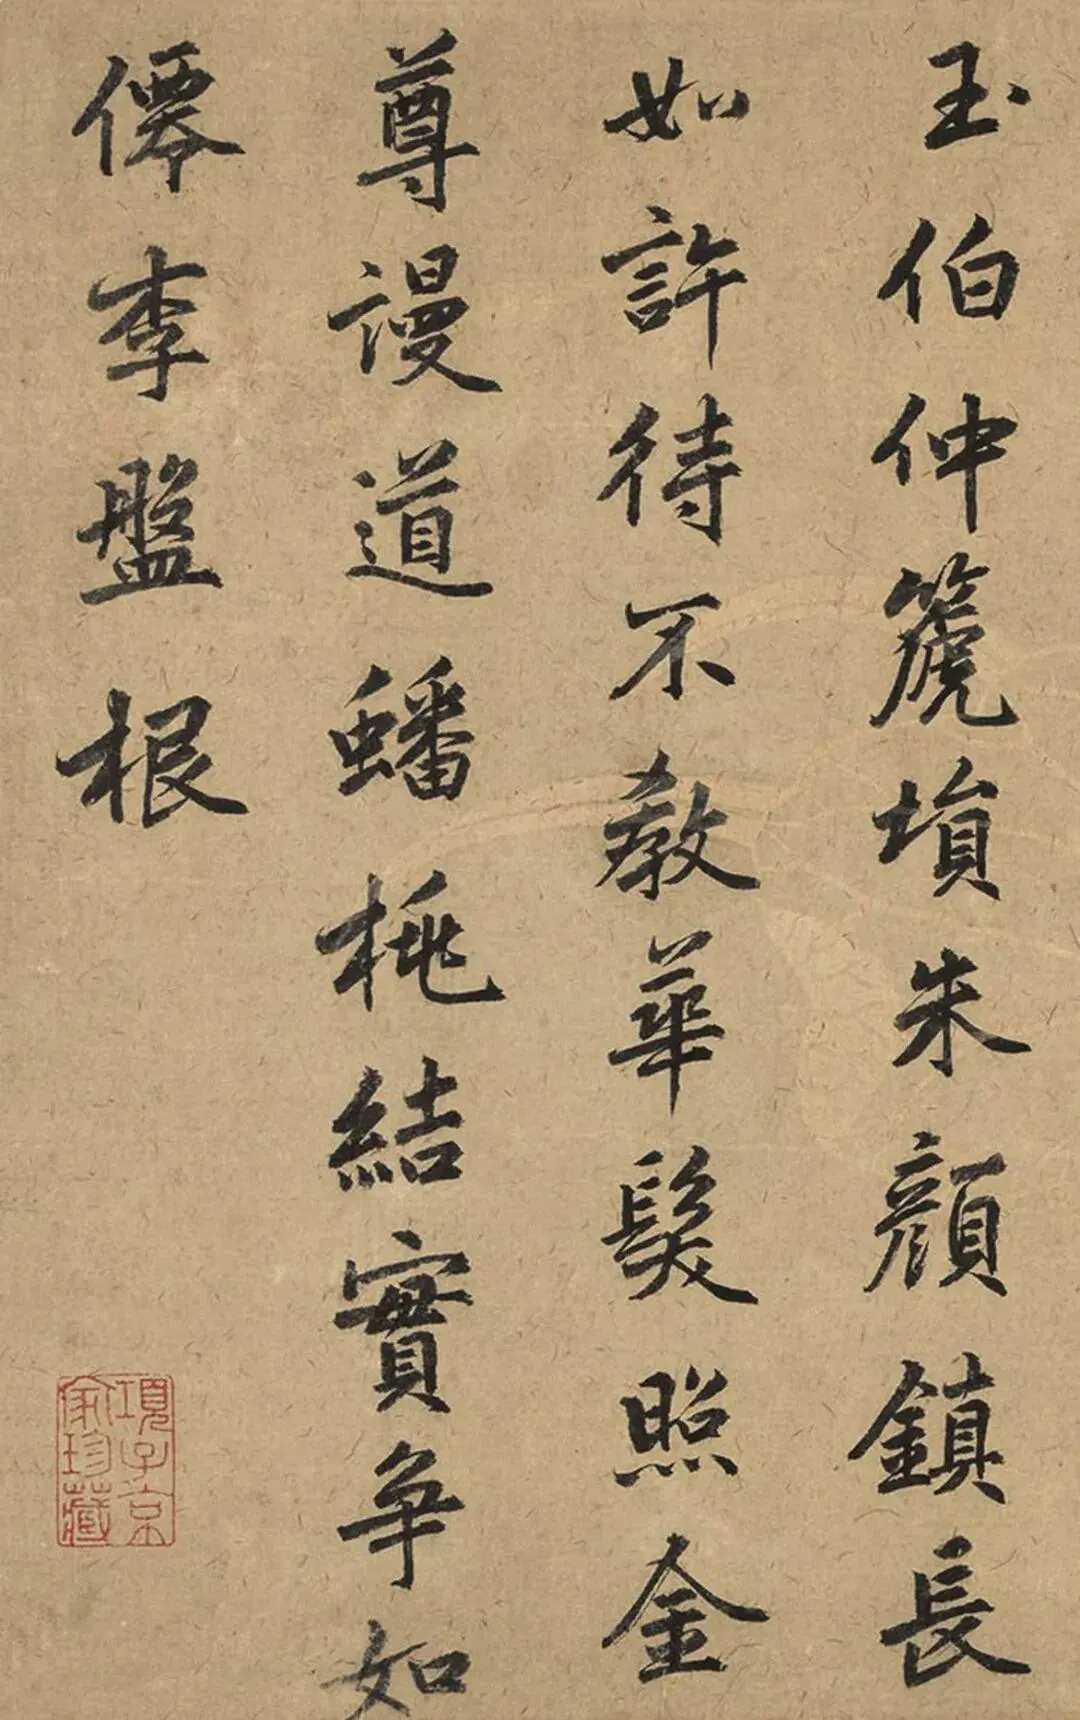 玉伯仲篪塤朱顔鎮長
如許待不教華髮照金
尊謾道蟠桃結實争如
僊李盤根
項子京
家珍藏